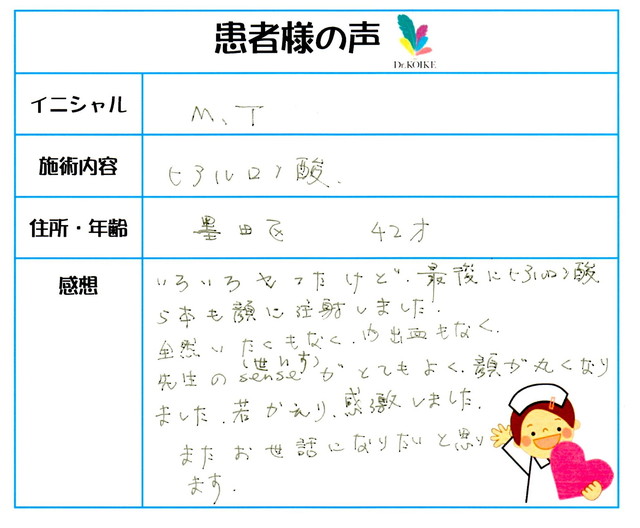 患者様の声
Dr.KOIKE
イニシャル
M、T
施術内容
ヒアルロン酸.
住所・年齢
墨田区 42才
感想
いろいろやったけど、最後にヒアルロン酸
5本も顔に注射しました.
全然いたくもなく、内出血もなく、
(せんす)
先生のsenseがとてもよく、顔が丸くなり
ました.若がえり、感激しました.
またお世話になりたいと思い
ます.